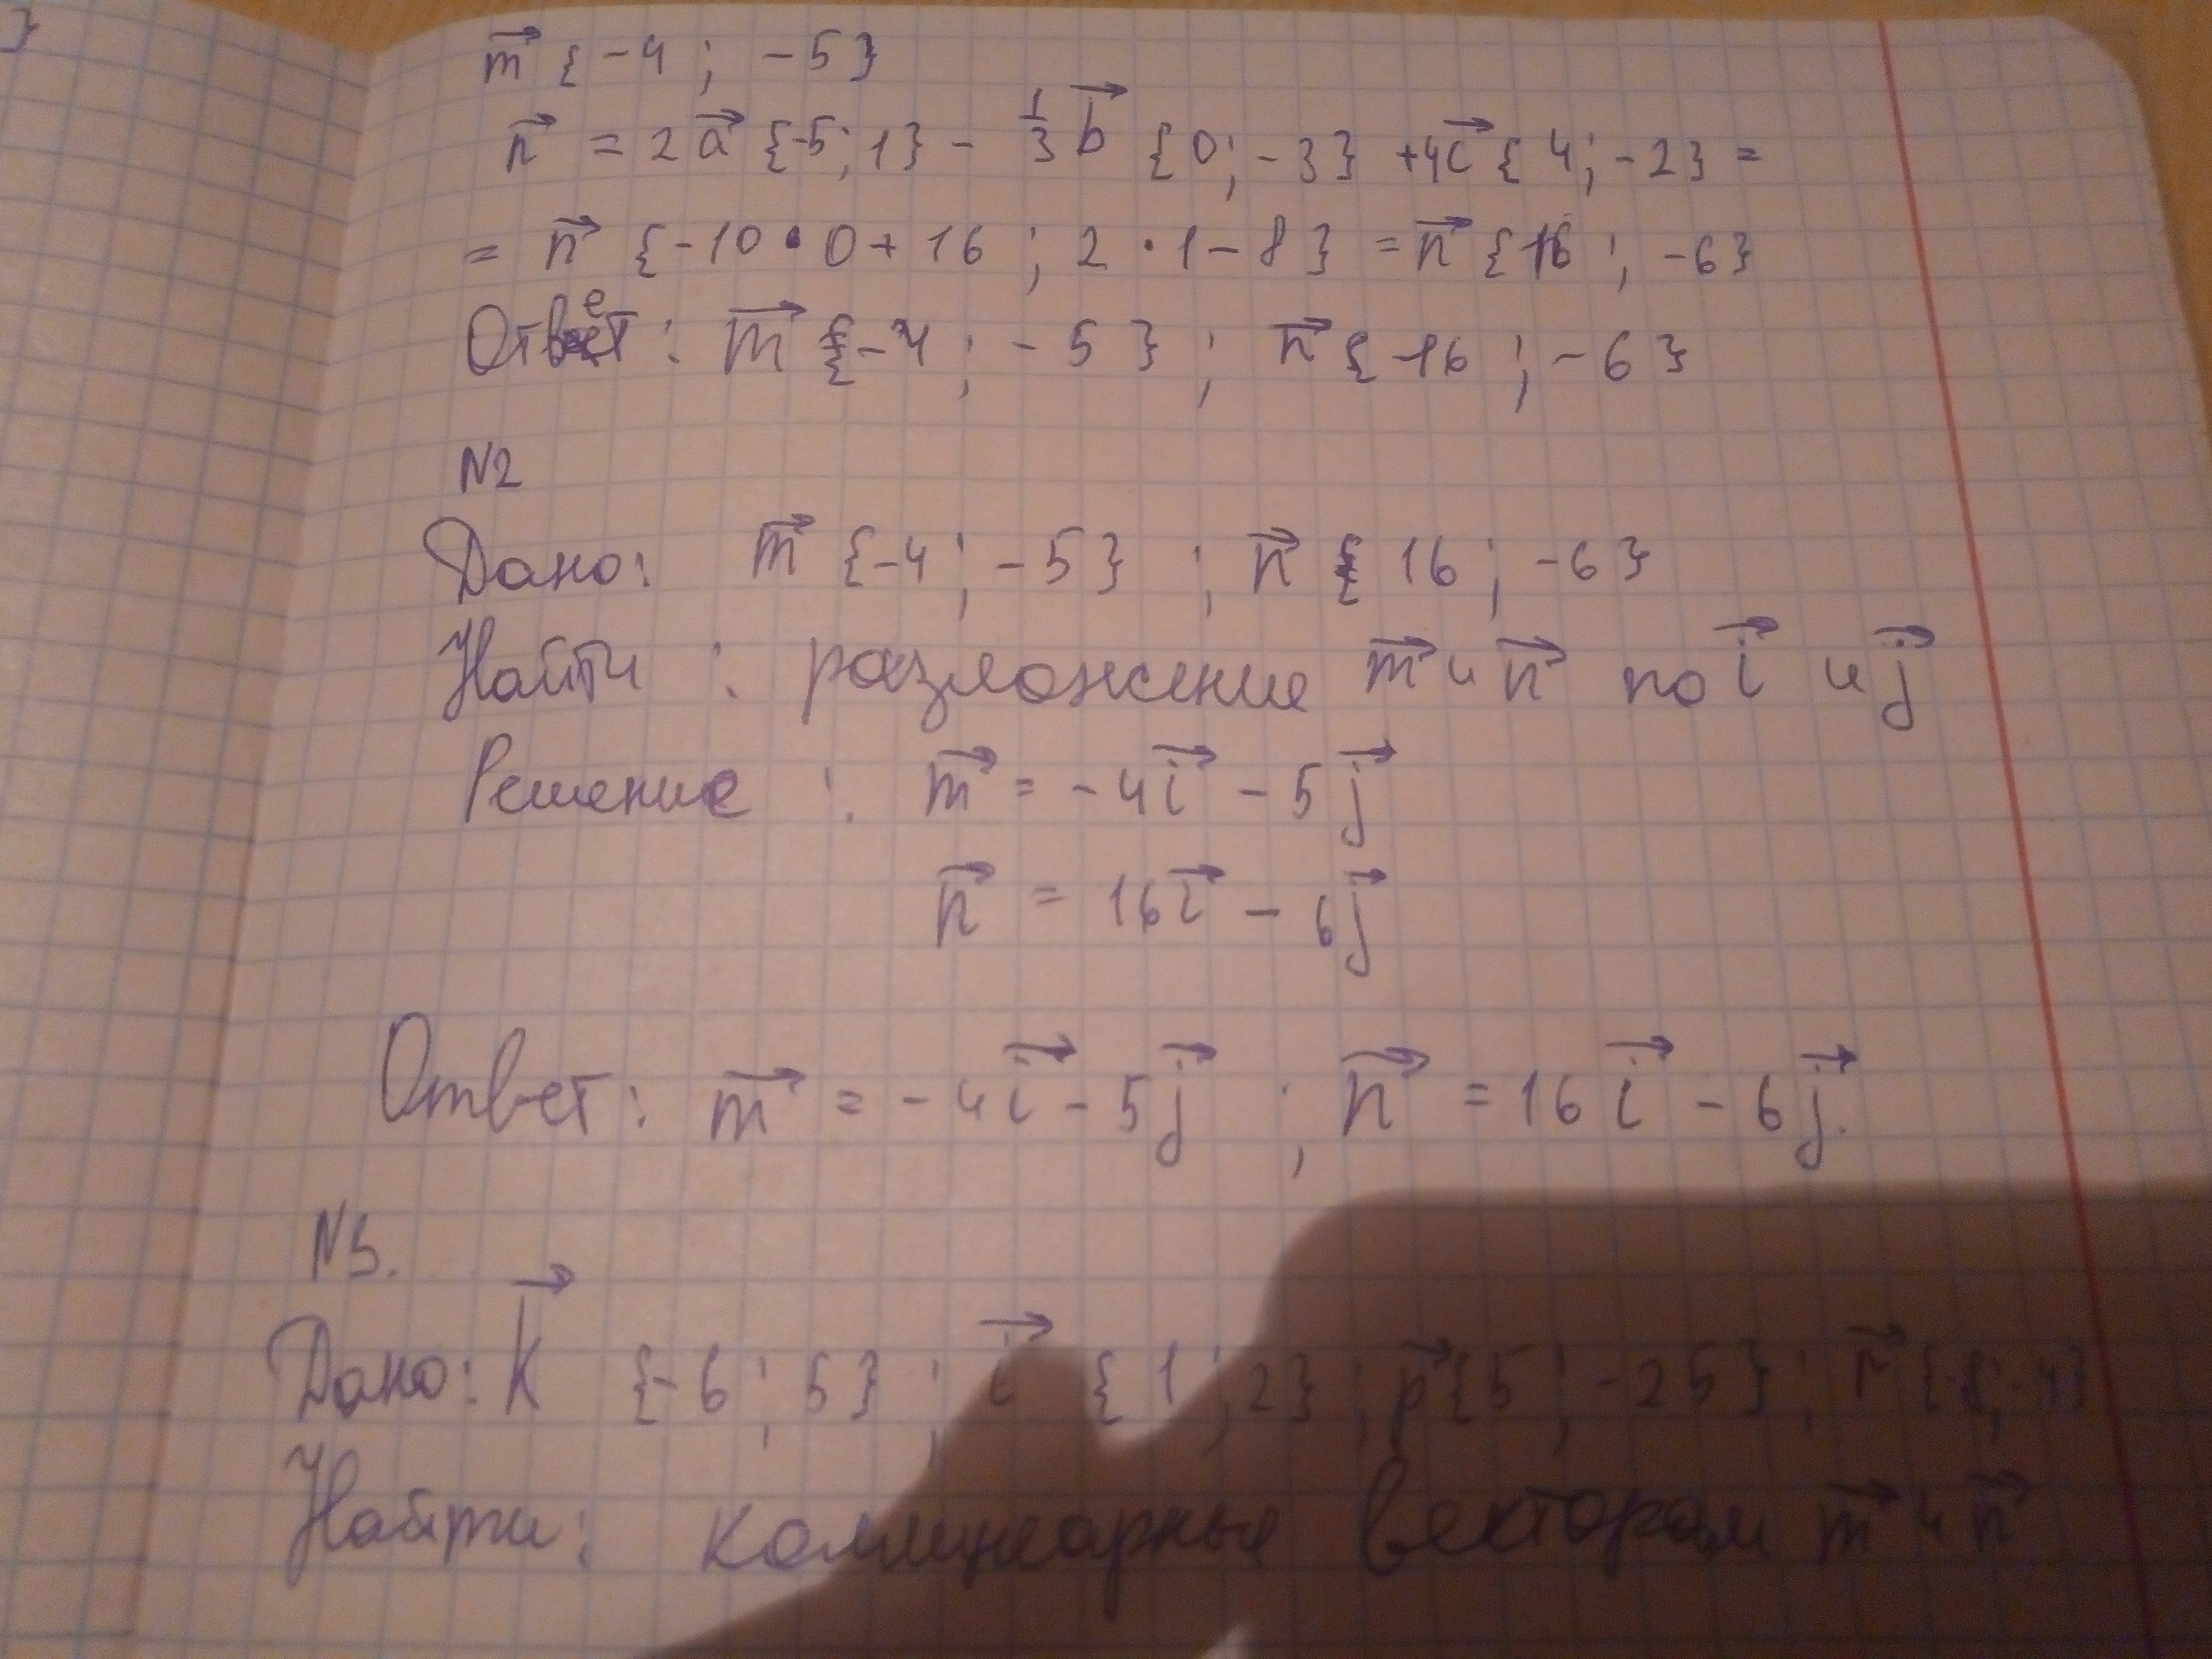 }
m⃗ {-4 ; -5}
n⃗ = 2a⃗ {-5; 1} - 1/3 b⃗ {0; -3} + 4c⃗ {4; -2} =
= n⃗ {-10 · 0 + 16 ; 2 · 1 - 8} = n⃗ {16 ; -6}
Ответ: m⃗ {-4 ; -5} ; n⃗ {16 ; -6}
N2
Дано: m⃗ {-4 ; -5} ; n⃗ {16 ; -6}
Найти : разложение m⃗ и n⃗ по i⃗ и j⃗
Решение : m⃗ = -4i⃗ - 5j⃗
n⃗ = 16i⃗ - 6j⃗
Ответ: m⃗ = -4i⃗ - 5j⃗ ; n⃗ = 16i⃗ - 6j⃗.
N3.
Дано: k⃗ {-6 ; 5} ; i⃗ {1 ; 2} ; p⃗ {5 ; -25} ; r⃗ {-8; -4}
Найти: коллинеарные векторам m⃗ и n⃗